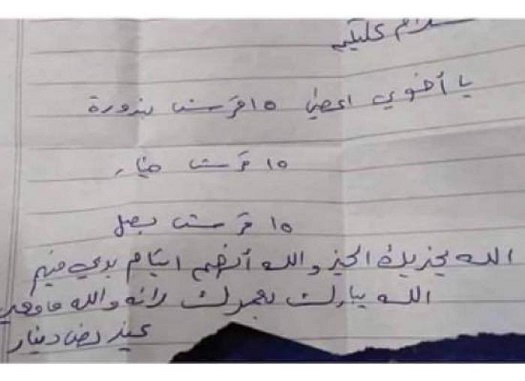 سلام عليكم
يا أخوي اعطني ١٥ قرش بندورة
١٥ قرش خيار
١٥ قرش بصل
الله يجزيك الخير والله أنهم ايتام بدي فيهم
الله يبارك بعمرك رانه والله مامعي
غير نص دينار